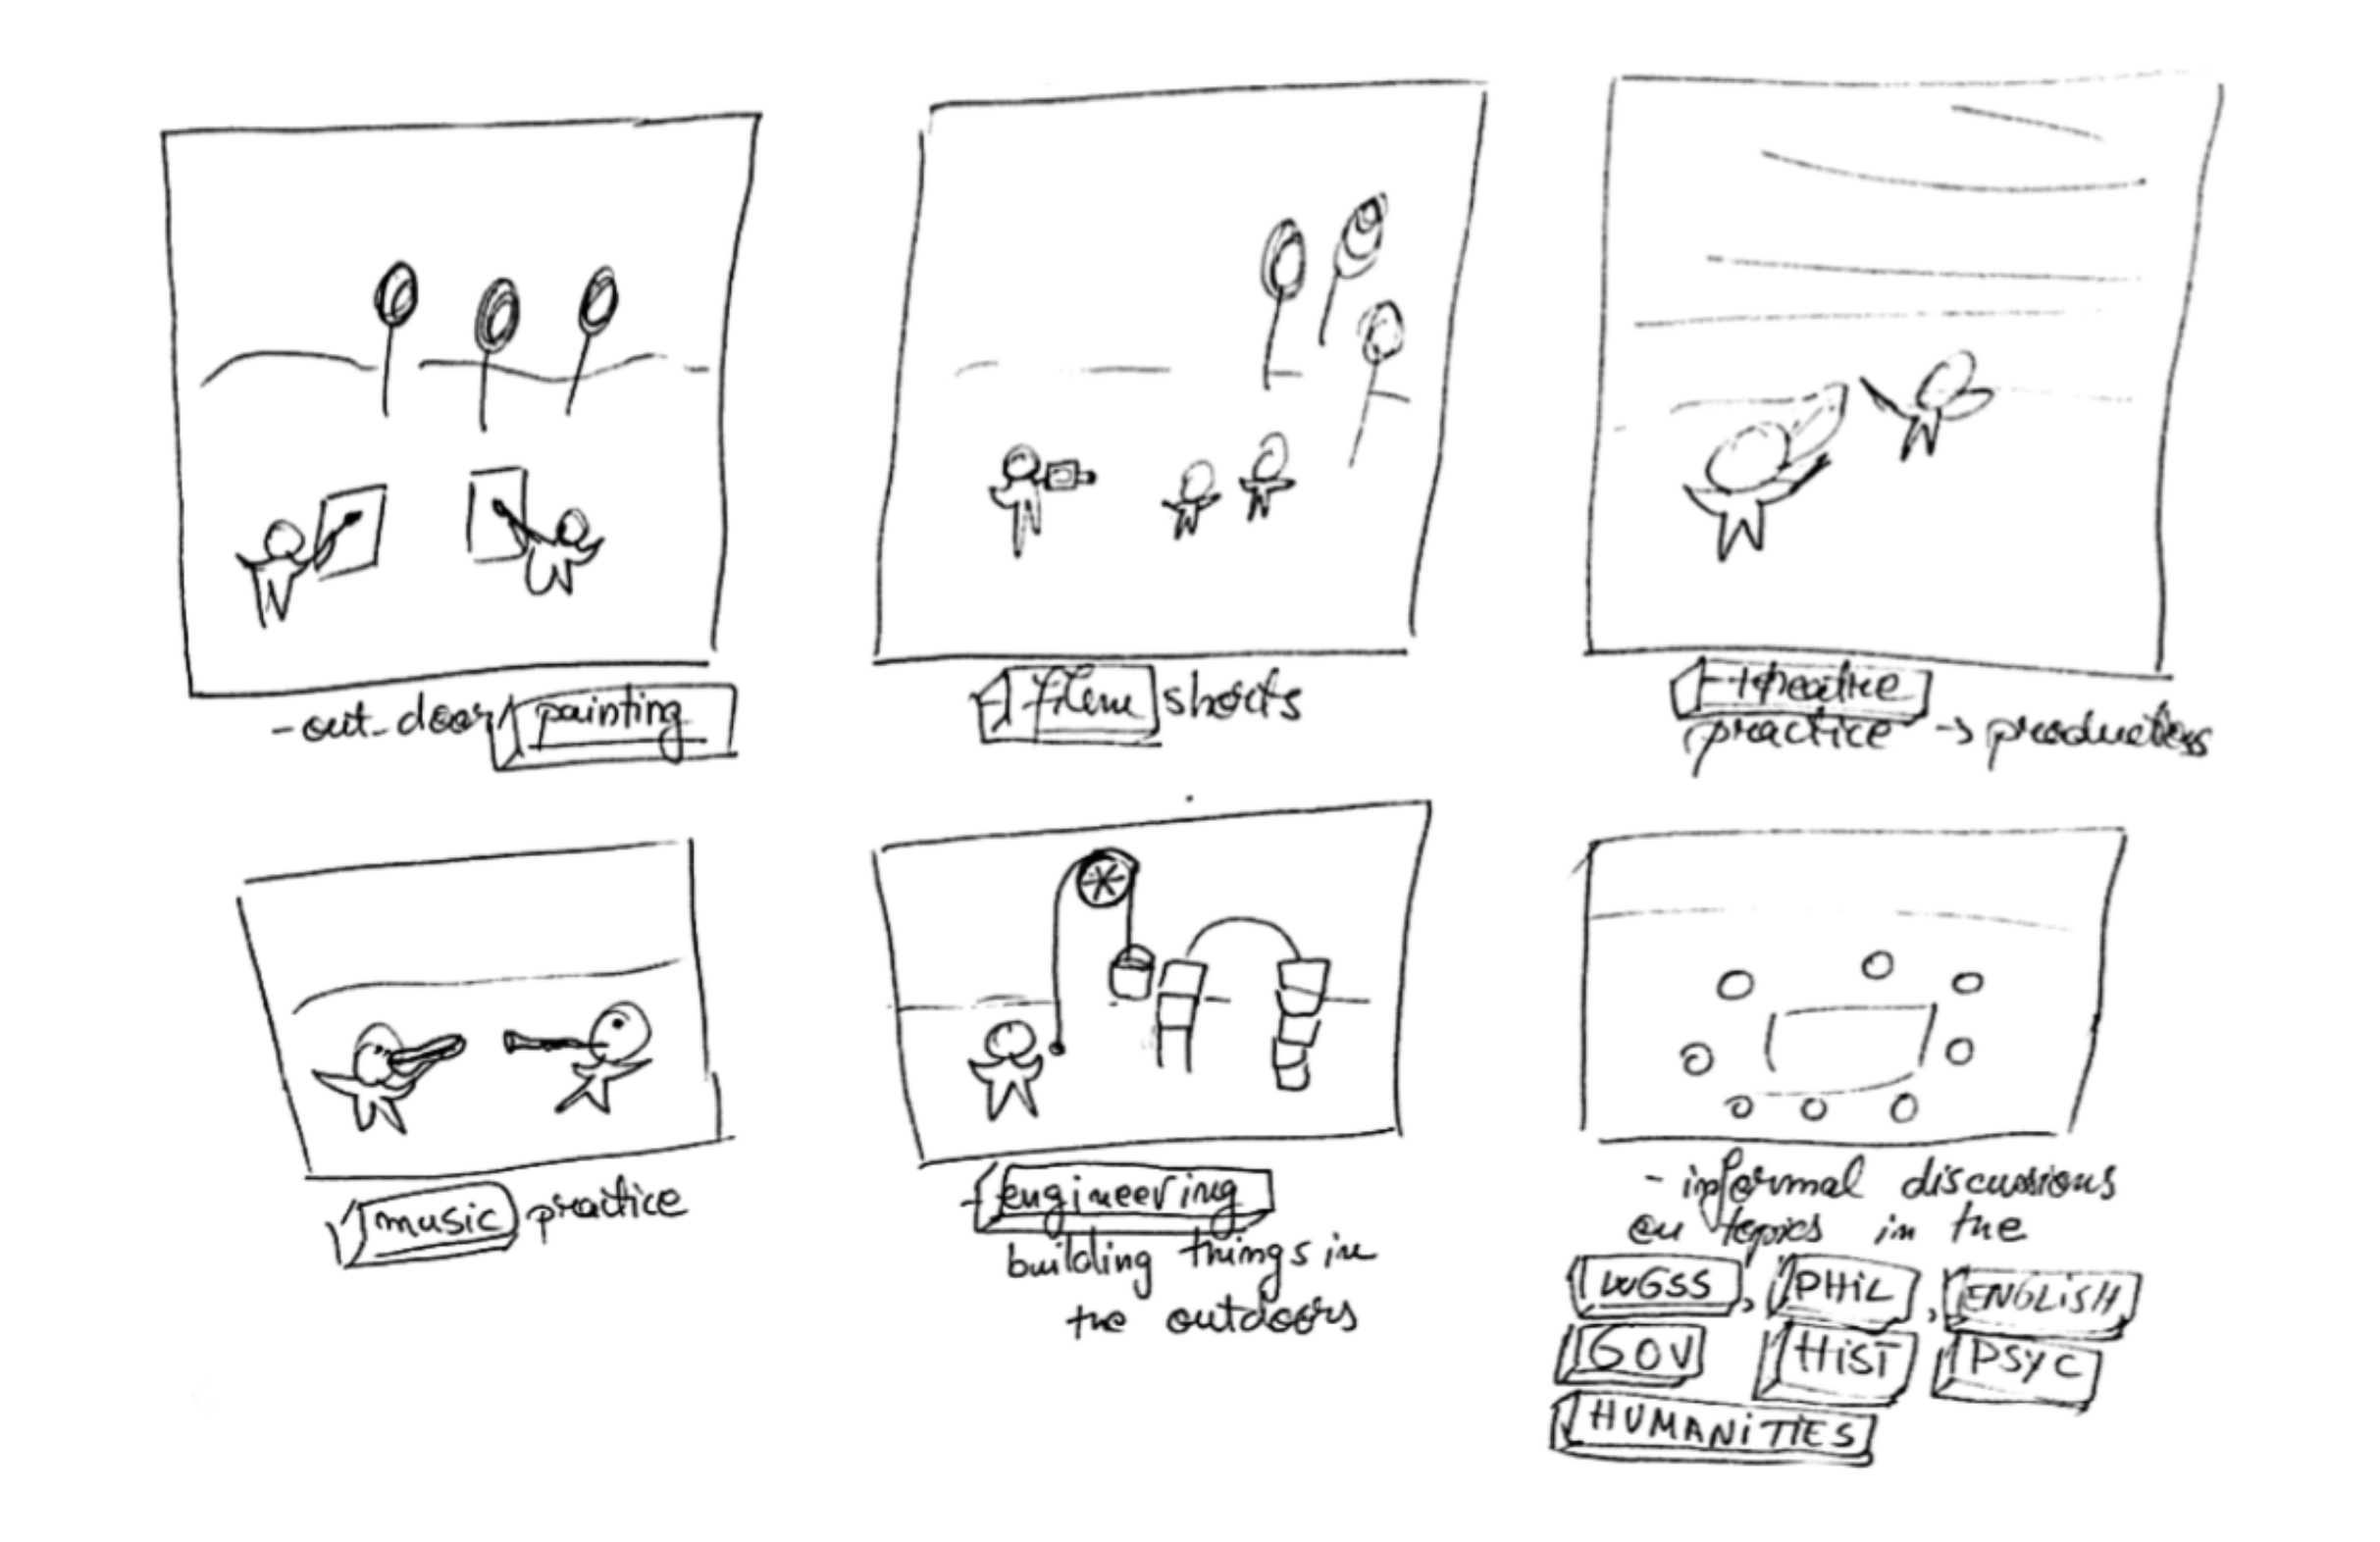 - out-door painting
- film shoots
- theatre
practice → productions
music practice
- engineering
building things in
the outdoors
- informal discussions
on topics in the
WGSS, PHIL, ENGLISH
GOV HIST PSYC
HUMANITIES